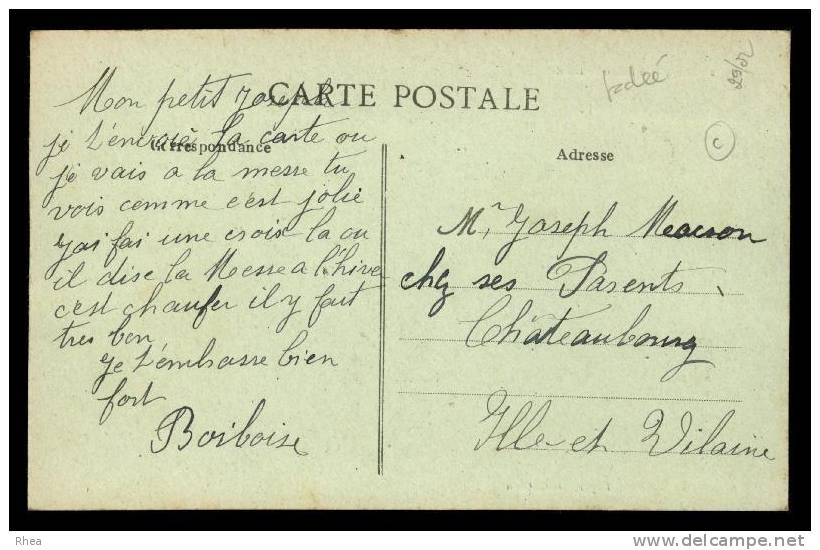 CARTE POSTALE
29/02
C
Correspondance
Adresse
Mon petit Joseph
je t'envoie la carte ou
je vais a la messe tu
vois comme c'est jolie
j'ai fai une crois la ou
il dise la Messe a l'hiver
c'est chaufer il y fait
tres bon
je t'embrasse bien
fort
Boiboise
Mr Joseph
chez ses Parents
Châteaubourg
Ille et Vilaine
Rhea
www.delcampe.net